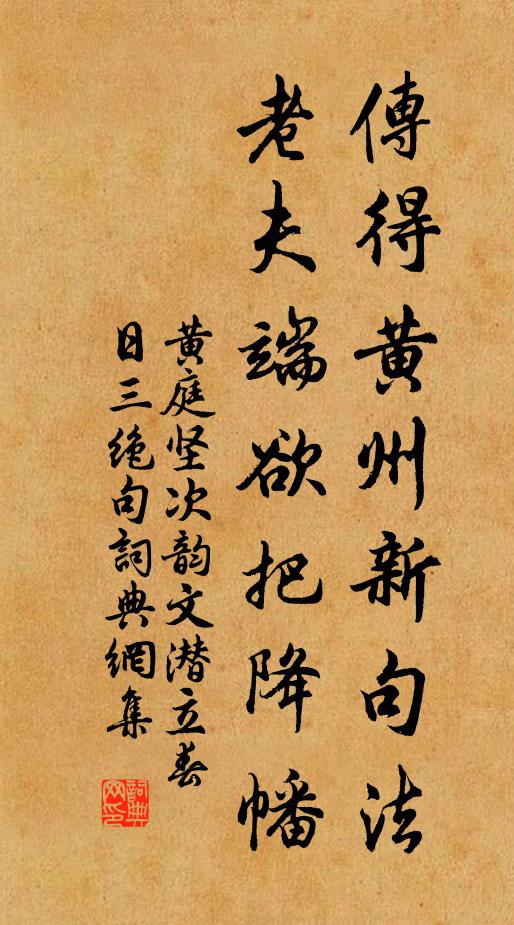 傳得黄州新句法
老夫端欲把降幡
黄庭坚次韵文潜立春
日三绝句詞典網集
詞典
网印